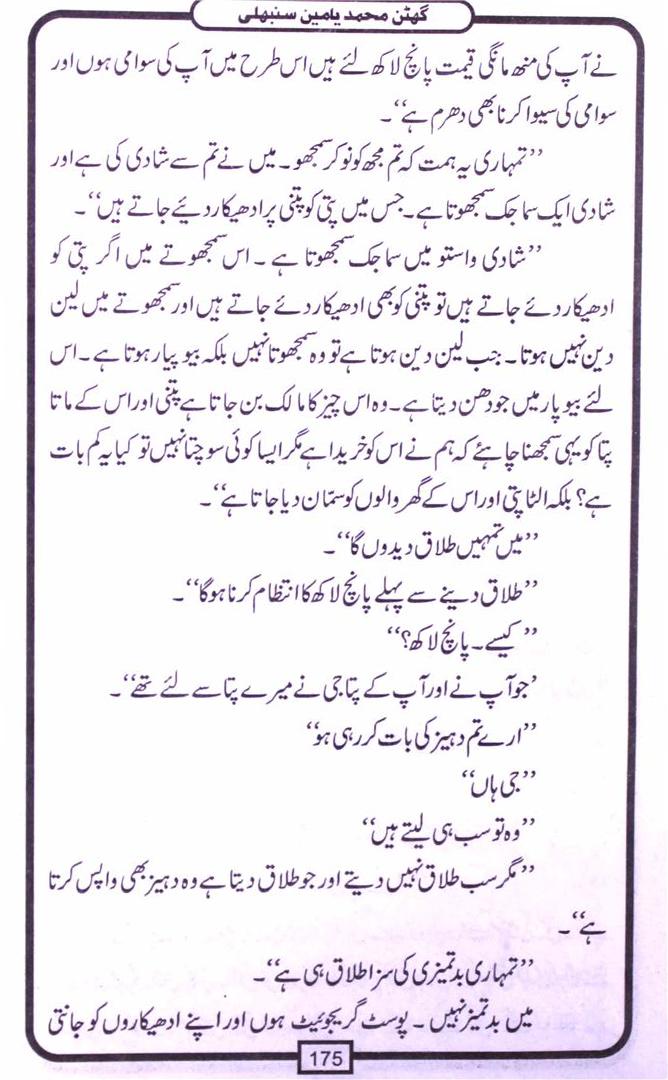 گھٹن محمد یامین سنبھلی
نے آپ کی منھ مانگی قیمت پانچ لاکھ لئے ہیں اس طرح میں آپ کی سوامی ہوں اور
سوامی کی سیوا کرنا بھی دھرم ہے‘‘۔
’’تمہاری یہ ہمت کہ تم مجھ کو نوکر سمجھو۔ میں نے تم سے شادی کی ہے اور
شادی ایک سماجک سمجھوتا ہے۔ جس میں پتی کو پتنی پر ادھیکار دئیے جاتے ہیں‘‘۔
’’شادی واستو میں سماجک سمجھوتا ہے ۔ اس سمجھوتے میں اگر پتی کو
ادھیکار دئے جاتے ہیں تو پتنی کو بھی ادھیکار دئے جاتے ہیں اور سمجھوتے میں لین
دین نہیں ہوتا۔ جب لین دین ہوتا ہے تو وہ سمجھوتا نہیں بلکہ بیوپار ہوتا ہے۔ اس
لئے بیوپار میں جو دھن دیتا ہے۔ وہ اس چیز کا مالک بن جاتا ہے پتنی اور اس کے ماتا
پتا کو یہی سمجھنا چاہئے کہ ہم نے اس کو خریدا ہے مگر ایسا کوئی سوچتا نہیں تو کیا یہ کم بات
ہے؟ بلکہ الٹا پتی اور اس کے گھر والوں کو سمّان دیا جاتا ہے‘‘۔
’’میں تمہیں طلاق دیدوں گا‘‘۔
’’طلاق دینے سے پہلے پانچ لاکھ کا انتظام کرنا ہوگا‘‘۔
’’ کیسے۔ پانچ لاکھ؟‘‘
’جو آپ نے اور آپ کے پتا جی نے میرے پتا سے لئے تھے‘‘۔
’’ارے تم دہیز کی بات کر رہی ہو‘‘
’’جی ہاں‘‘
’’وہ تو سب ہی لیتے ہیں‘‘
’’مگر سب طلاق نہیں دیتے اور جو طلاق دیتا ہے وہ دہیز بھی واپس کرتا
ہے‘‘۔
’’تمہاری بدتمیزی کی سزا طلاق ہی ہے‘‘۔
میں بدتمیز نہیں ۔ پوسٹ گریجوئیٹ ہوں اور اپنے ادھیکاروں کو جانتی
175